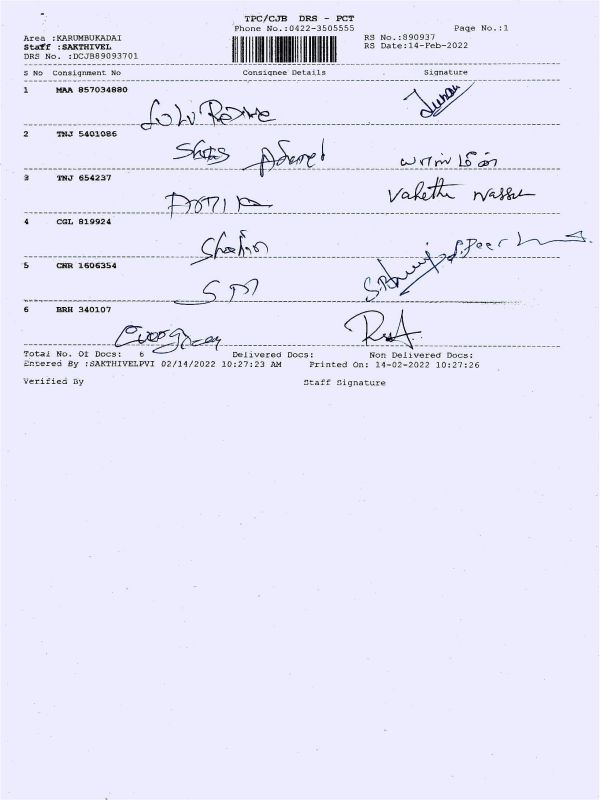 TPC/CJB DRS - PCT
Phone No.:0422-3505555 Page No.:1
Area :KARUMBUKADAI RS No.:890937
Staff :SAKTHIVEL RS Date:14-Feb-2022
DRS No. :DCJB89093701
S No Consignment No Consignee Details Signature
1 MAA 857034880
2 TNJ 5401086
3 TNJ 654237
4 CGL 819924
5 CNR 1606354
S M
6 BRH 340107
Total No. Of Docs: 6 Delivered Docs: Non Delivered Docs:
Entered By :SAKTHIVELPVI 02/14/2022 10:27:23 AM Printed On: 14-02-2022 10:27:26
Verified By Staff Signature